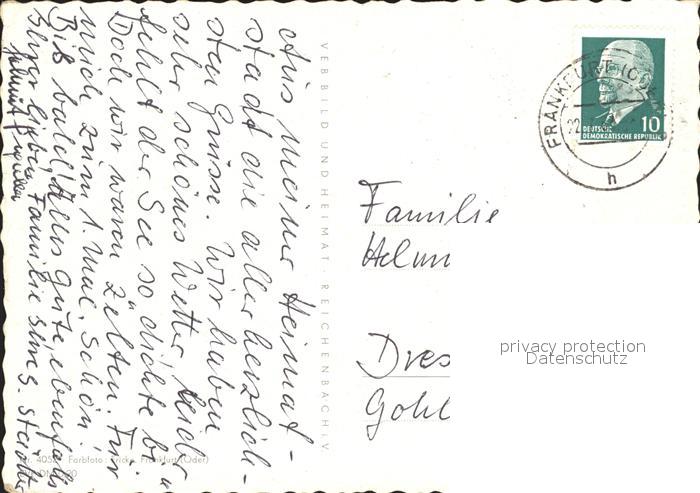 Aus meiner Heimat-
stadt die allerherzlich-
sten Grüsse. Wir haben
sehr schönes Wetter, leider
fehlt der See so dichte bei"
Doch wir waren "Zelten. Für
mich zum 1. Mal. Schön!
Bis bald! Alles Gute, ebenfalls
Ihrer lieben Familie Ihre S.
VEB BILD UND HEIMAT · REICHENBACH i V
Farbfoto: Fricke, Frankfurt (Oder)
FRANKFURT (ODER)
22
h
10
DEUTSCHE
DEMOKRATISCHE REPUBLIK
Familie
Helmu
Dres
Gohl
privacy protection
Datenschutz